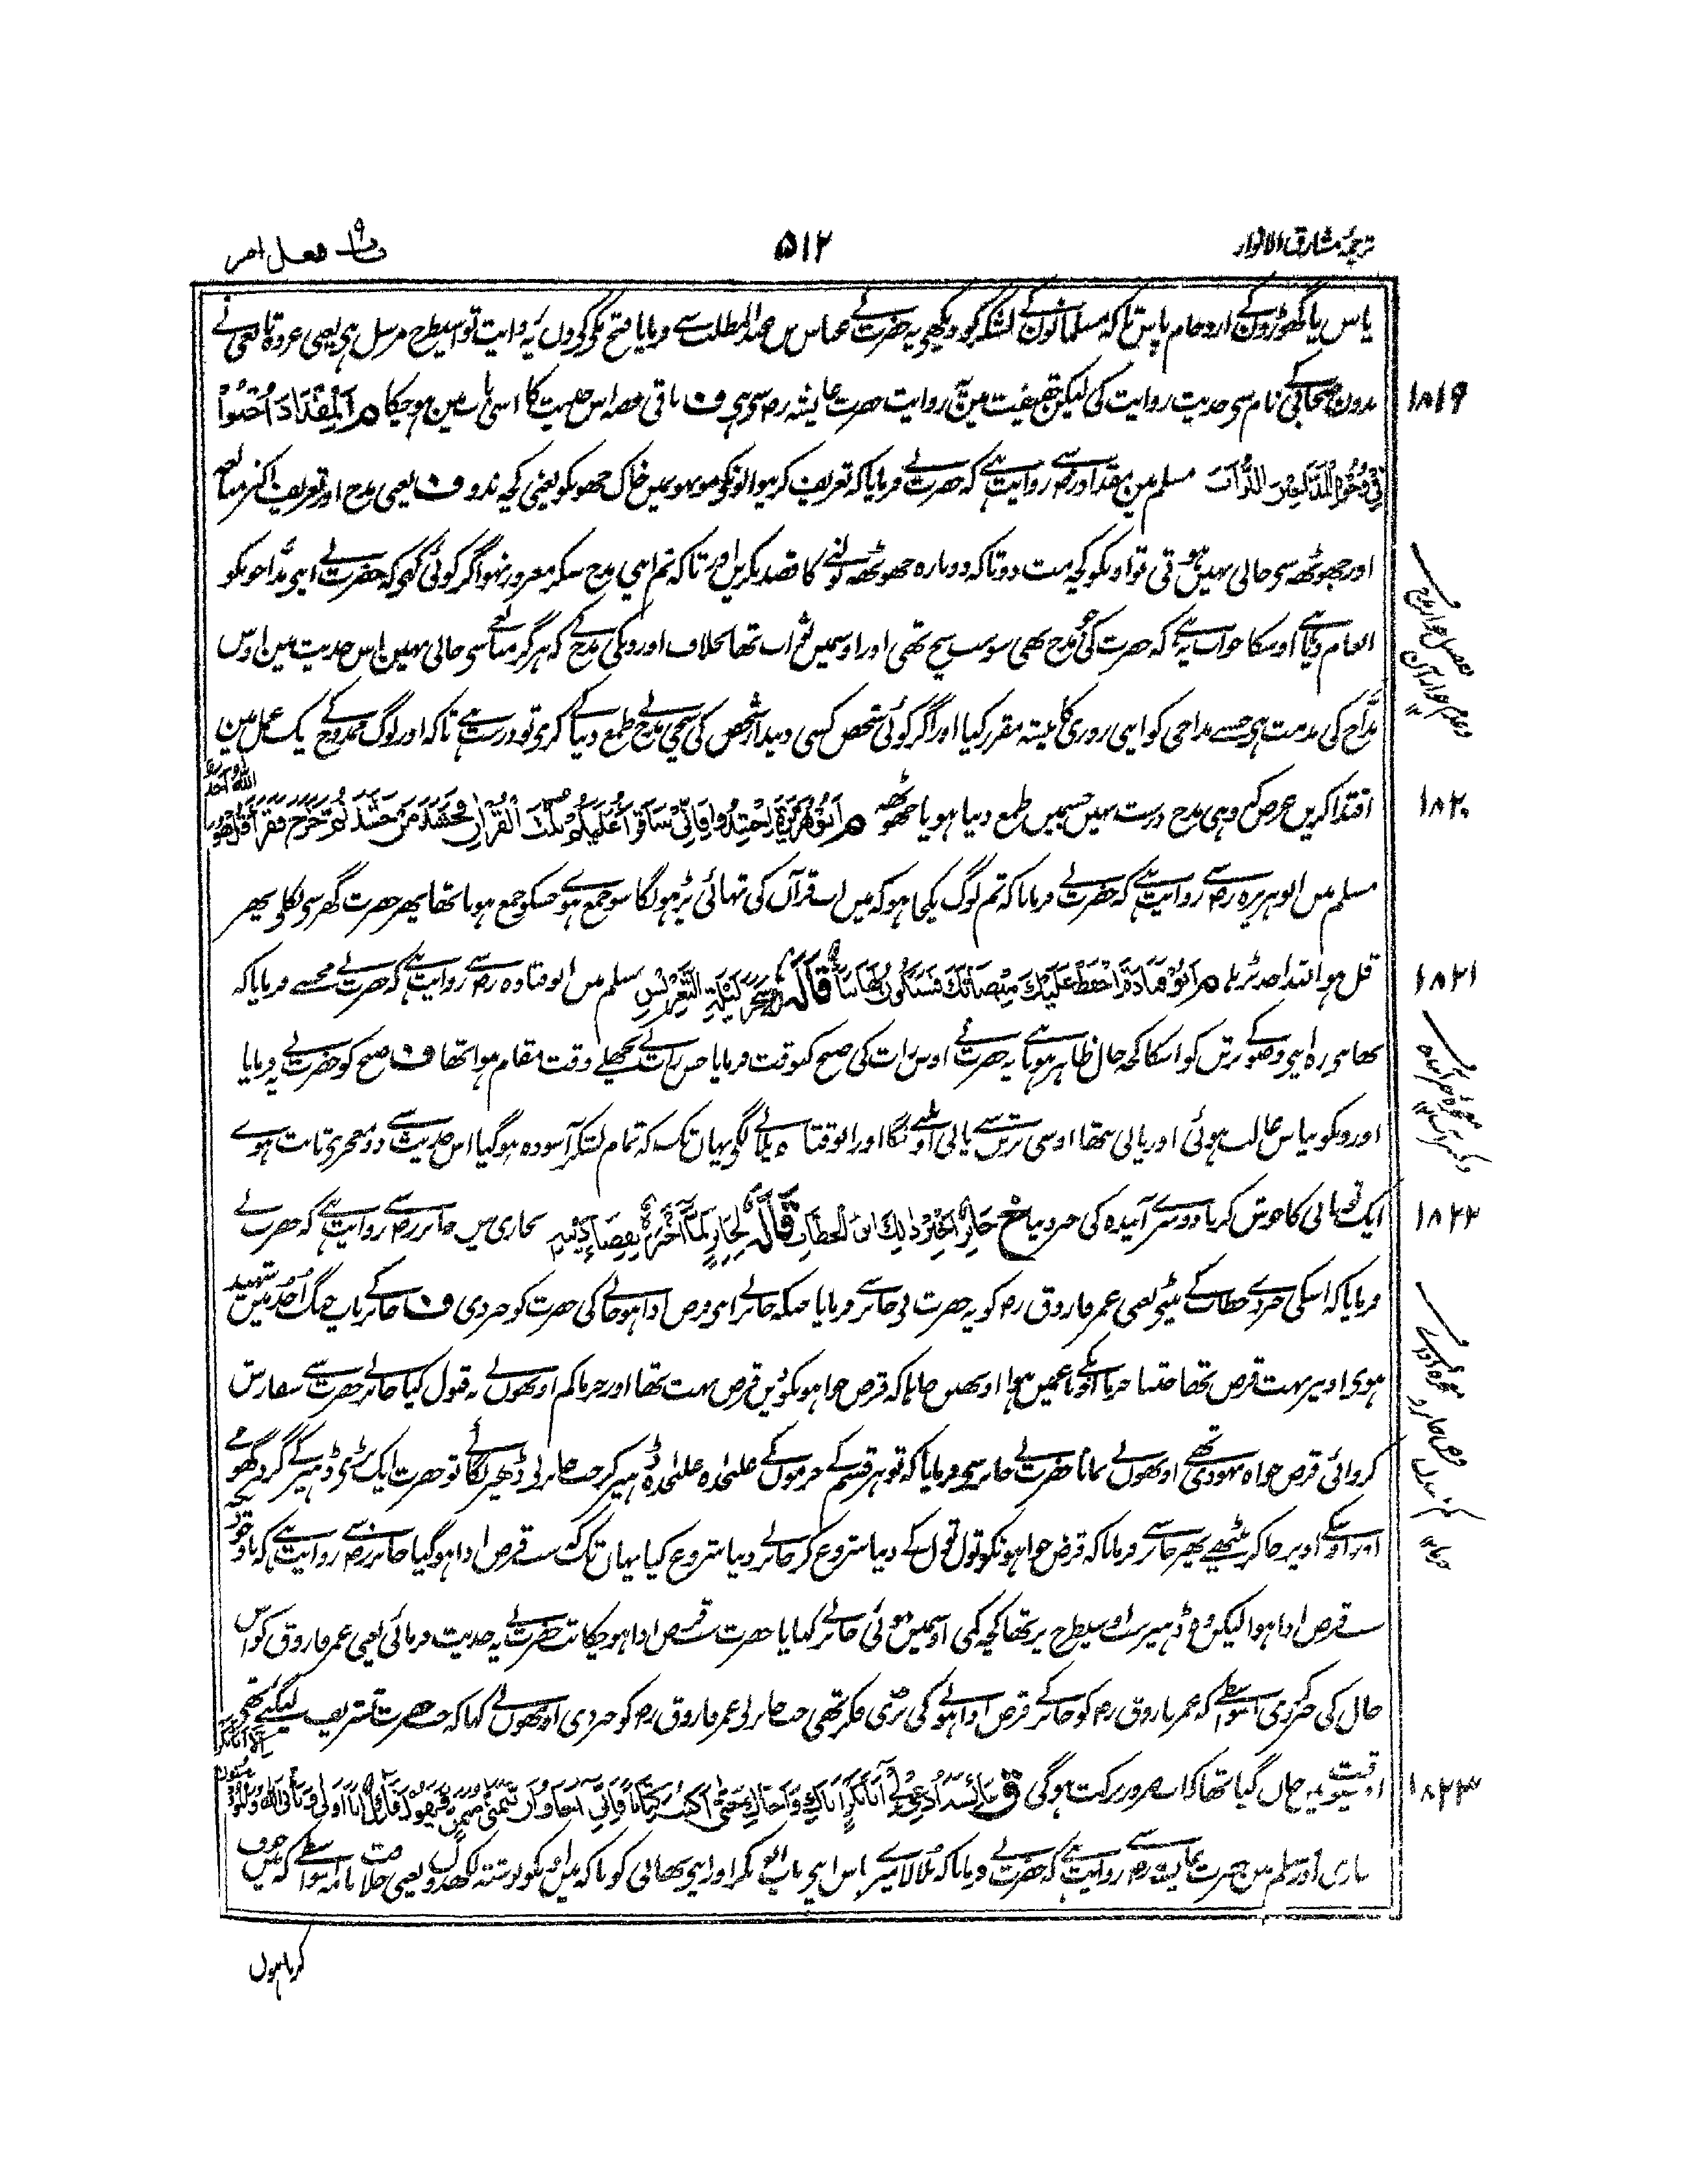 ترجمۂ مشارق الانوار
۵۱۲
فصل امر
پاس یا گھوڑون کے اردحام پاس تاکہ مسلمانون کے لشکر کو دیکھی یہ حضرت نے عباس بن عبدالمطلب سے فرمایا فتح مکہ کے دن یہ روایت تو اسیطرح مرسل ہی یعنی عروہ تابعی نے
۱۸۱۹
بدون صحابی کے نام سی حدیث روایت کی لیکن حقیقت مین یہ روایت حضرت عایشہ رض سی ہی ف باقی قصہ اس حدیث کا اسی باب مین ہو چکا م اَلْمِقْدَادُ اُحْثُوْا
فِيْ وُجُوْهِ الْمَدَّاحِيْنَ التُّرَابَ مسلم مین مقداد رض سے روایت ہے کہ حضرت نے فرمایا کہ تعریف کرنیوالونکو مونہو نمین خاک جھونکو یعنی کچھ ندو ف یعنی مدح اور تعریف اکثر مبالغہ
اور جھوٹھ سی خالی نہین ہوتی تو اونکو کچھ مت دو تاکہ دوبارہ جھوٹھ بولنے کا قصد نکرین اور تاکہ تم اپنی مدح سنکر مغرور نہو اگر کوئی کہی کہ حضرت نے اپنی مداحونکو
انعام دیا ہے اوسکا جواب یہ ہے کہ حضرت کی جو مدح تھی سو سب سچ تھی اور اوسمین ثواب تھا بخلاف اورونکی مدح کے کہ ہرگز مبالغے سی خالی نہین اس حدیث مین اوس
مداح کی مذمت ہی جسنے مداحی کو اپنی روزی کا پیشہ مقرر کیا اور اگر کوئی شخص کسی دیندار شخص کی سچی مدح بے طمع دنیا کے کری تو درست ہے تاکہ اور لوگ ممدوح کے نیک عمل مین
۱۸۲۰
اقتدا کرین غرض کہ وہی مدح درست نہین جسمین طمع دنیا ہو یا جھوٹھ م اَبُوْ هُرَيْرَةَ اِحْتَشِدُوْا فَاِنِّيْ سَاَقْرَأُ عَلَيْكُمْ ثُلُثَ الْقُرْاٰنِ فَحَشَدَ مَنْ حَشَدَ ثُمَّ خَرَجَ فَقَرَأَ قُلْ هُوَ اللّٰهُ اَحَدٌ
مسلم مین ابو ہریرہ رض سے روایت ہے کہ حضرت نے فرمایا کہ تم لوگ یکجا ہو کہ مین اب قرآن کی تہائی پڑھونگا سو جمع ہوے جسکو جمع ہونا تھا پھر حضرت گھر سی نکلی پھر
۱۸۲۱
قل ہو اللہ احد پڑھی م اَبُوْ قَتَادَةَ اِحْفَظْ عَلَيْكَ مِيْضَأَتَكَ فَسَيَكُوْنُ لَهَا نَبَأٌ قَالَهُ سَحَرَ لَيْلَةِ التَّعْرِيْسِ مسلم مین ابو قتادہ رض سے روایت ہے کہ حضرت نے مجھسے فرمایا کہ
تھامی رہ اپنی وضو کے برتن کو اسکا کچھ حال ظاہر ہونا ہے یہ حضرت نے اوس رات کی صبح کیوقت فرمایا جس رات کے پچھلے وقت مقام ہوا تھا ف صبح کو حضرت نے یہ فرمایا
اورونکو پیاس غالب ہوئی اور پانی نتھا اوسی برتن سے پانی اوبلنے لگا اور ابوقتادہ پلانے لگی یہان تک کہ تمام لشکر آسودہ ہو گیا اس حدیث سے دو معجزی ثابت ہوے
۱۸۲۲
ایک تو پانی کا جوش کرنا دوسرے آیندہ کی خبر دینا خ جَابِرٌ اَخْبِرْ ذٰلِكَ ابْنَ الْخَطَّابِ قَالَهُ لِجَابِرٍ لَمَّا اَخْبَرَهُ بِقَضَاءِ دَيْنِهِ بخاری مین جابر رض سے روایت ہے کہ حضرت نے
فرمایا کہ اسکی خبر دے خطاب کے بیٹی یعنی عمر فاروق رض کو یہ حضرت نے جابر سے فرمایا جبکہ جابر نے اپنی قرض ادا ہو جانے کی حضرت کو خبر دی ف جابر کے باپ جنگ اُحد مین شہید
ہوی اونپر بہت قرض تھا جتنا خرما اونکے باغ مین ہوا اونھون نے چاہا کہ قرض خواہونکو دین قرض بہت تھا اور خرما کم اونھون نے نہ قبول کیا جابر نے حضرت سے سفارش
کروائی قرض خواہ یہودی تھے اونھون نے نمانا حضرت نے جابر سی فرمایا کہ تو ہر قسم کے خرمون کے علیحدہ علیحدہ ڈھیر کر جب جابر نے ڈھیر لگائے تو حضرت ایک بڑی ڈھیر کے گرد گھومے
پھر اوسکے اوپر جا کر بیٹھے پھر جابر سے فرمایا کہ قرض خواہونکو تول تول کے دینا شروع کر جابر نے دینا شروع کیا یہان تک کہ سب قرض ادا ہو گیا جابر رض سے روایت ہے کہ باوجودیکہ
سب قرض ادا ہوا لیکن وہ ڈھیر سب اوسیطرح پر تھا کچھ کمی اوسمین نہوئی جابر نے کہا یا حضرت سب قرض ادا ہو چکا تب حضرت نے یہ حدیث فرمائی یعنی عمر فاروق کو اس
حال کی خبر دی اسواسطے کہ عمر فاروق رض کو جابر کے قرض ادا ہونے کی بڑی فکر تھی جب جابر نے عمر فاروق رض کو خبر دی اونھون نے کہا کہ جب حضرت تشریف لیگئے تھے
۱۸۲۳
اوسیوقت مین جان گیا تھا کہ اب ضرور برکت ہوگی ق عَائِشَةُ اُدْعِيْ لِيْ اَبَا بَكْرٍ اَبَاكِ وَاَخَاكِ حَتّٰى اَكْتُبَ كِتَابًا فَاِنِّيْ اَخَافُ اَنْ يَتَمَنّٰى مُتَمَنٍّ وَيَقُوْلَ قَائِلٌ اَنَا اَوْلٰى وَيَأْبَى اللّٰهُ وَالْمُؤْمِنُوْنَ اِلَّا اَبَا بَكْرٍ
بخاری اور مسلم مین حضرت عایشہ رض سے روایت ہے کہ حضرت نے فرمایا کہ بلا لا میرے پاس اپنی باپ ابو بکر اور اپنی بھائی کو تاکہ مین اونکو نوشتہ لکھدون یعنی خلافت نامہ اسواسطے کہ مین خوف
کرتا ہون